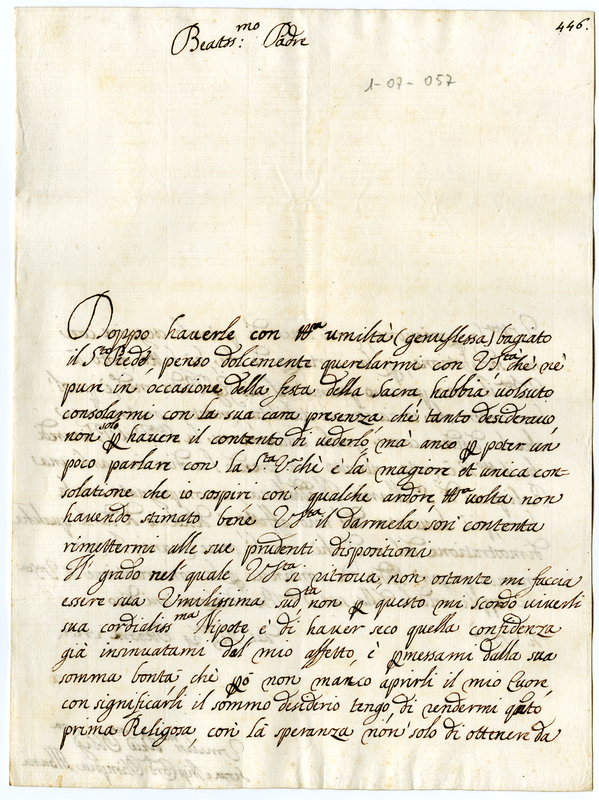 446.
Beatiss:mo Padre
1-07-057
Doppo haverle con ttta umiltà (genuflessa) bagiato
il Sto Piede, penso dolcemente querelarmi con VSta che nè
pure in occasione della festa della Sacra habbia volsuto
consolarmi con la sua cara presenza che tanto desideravo
non solo p havere il contento di vederlo, mà anco p poter un
poco parlare con la Sta V che è là magiore et unica con=
solatione che io sospiri con qualche ardore, ttta volta non
havendo stimato bene VSta il darmela son contenta
rimettermi alle sue prudenti dispotitioni
Il grado nel quale VSta si ritrova non ostante mi faccia
essere sua Umilissima sudta non p questo mi scordo viverli
sua cordialissma Nipote è di haver seco quella confidenza
già insinuatami dal mio affetto è pmessami dalla sua
somma bontà che pò non manco aprirli il mio Cuore
con significarli il sommo desiderio tengo di rendermi quto
prima Religosa, con là speranza non solo di ottenere da